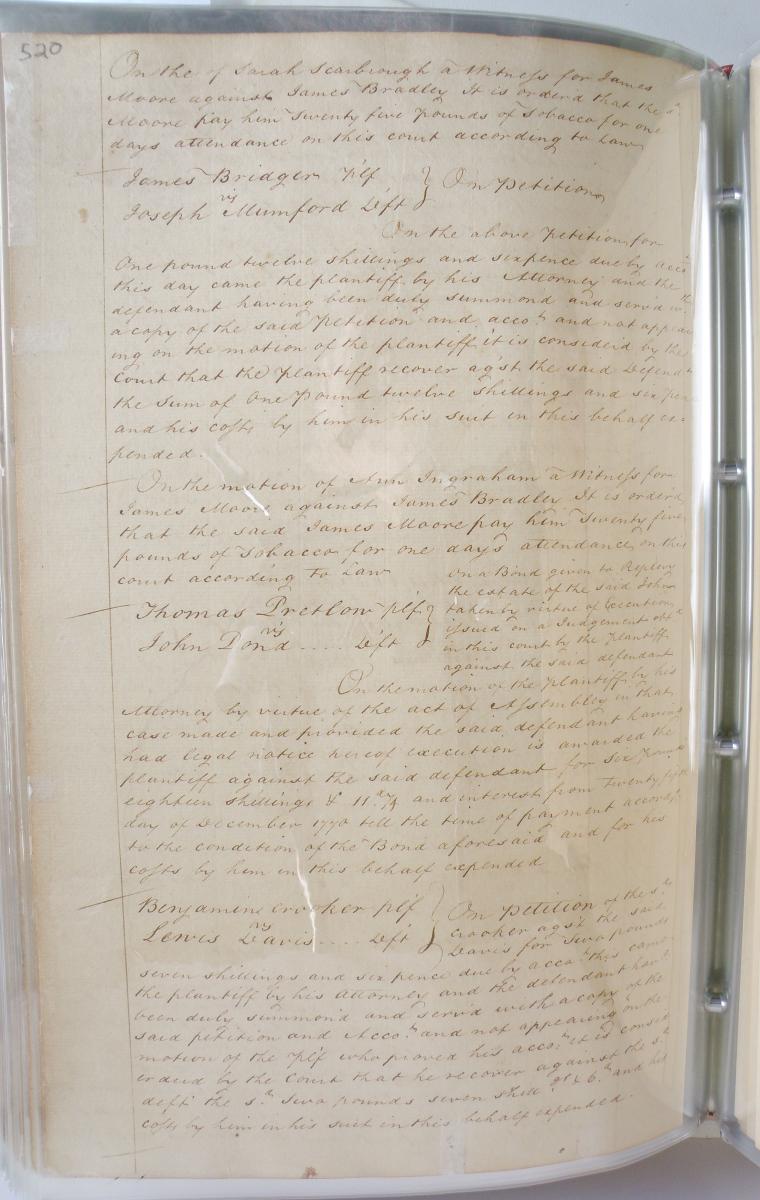 520
On the of Sarah Scarbrough a Witness for James
Moore against James Bradley It is order'd that the s.d
Moore pay him Twenty five pounds of Tobacco for one
days attendance on this court according to Law
James Bridger Plf
vs
Joseph Mumford Deft
On Petition
On the above Petition for
One pound twelve shillings and sixpence due by acco
this day came the plantiff by his Attorney and the
defendant having been duly summond and serv'd w.th
a copy of the said Petition and acco.t and not appear
ing on the motion of the plantiff it is consider'd by the
Court that the Plantiff recover ag'st the said Defend
the Sum of One Pound twelve Shillings and six pen
and his costs by him in his suit in this behalf ex-
pended.
On the motion of Ann Ingraham a Witness for
James Moore against James Bradley It is order'd
that the said James Moore pay him Twenty five
pounds of Tobacco for one days attendance on this
court according to Law
Thomas Pretlow plf
vs
John Pond .... Deft
on a Bond given to Replevy
the estate of the said John
taken by virtue of Execution
issued on a Judgement obt.d
in this court by the Plantiff
against the said defendant
On the motion of the Plantiff by his
Attorney by virtue of the act of Assembly in that
case made and provided the said defendant having
had legal notice hereof execution is awarded the
plantiff against the said defendant for six pounds
eighteen shillings & 11 and interest from Twenty fifth
day of December 1770 till the time of payment accord.g
to the condition of the Bond aforesaid and for his
costs by him in this behalf expended
Benjamin Crocker plf
vs
Lewis Davis .... Deft
On Petition of the s.d
Crocker ag'st the said
Davis for Two pounds
seven shillings and six pence due by acco.t this came
the plantiff by his attorney and the defendant hav.g
been duly summon'd and serv'd with a copy of the
said petition and Acco.t and not appearing on the
motion of the Plf who proved his acco.t it is consid
erded by the Court that he recover against the s.d
deft the s.d Two pounds seven shill & 6.d and his
costs by him in his suit in this behalf expended.